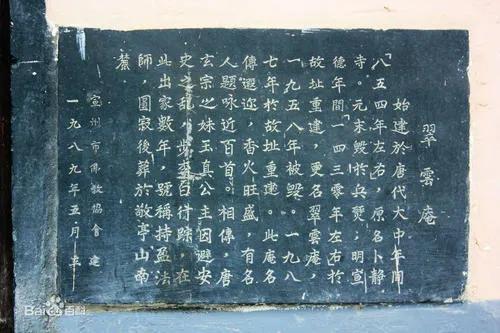 翠雲庵
始建於唐代大中年間
「八五四年左右，原名卜静
寺。元末毀於兵燹；明宣
德年間「一四三零年左右於
故址重建，更名翠雲庵，
一九五八年被毀。一九八
七年於故址重建。此庵名
傳遐迩，香火旺盛，有名
人題咏近百首。相傳，唐
玄宗之妹玉真公主因避安
史之乱，步李白行踪，在
此出家數年，號稱持盈法
師，圓寂後葬於敬亭山南
麓
宣州市佛教協會 建
一九八九年五月
Baidu百科